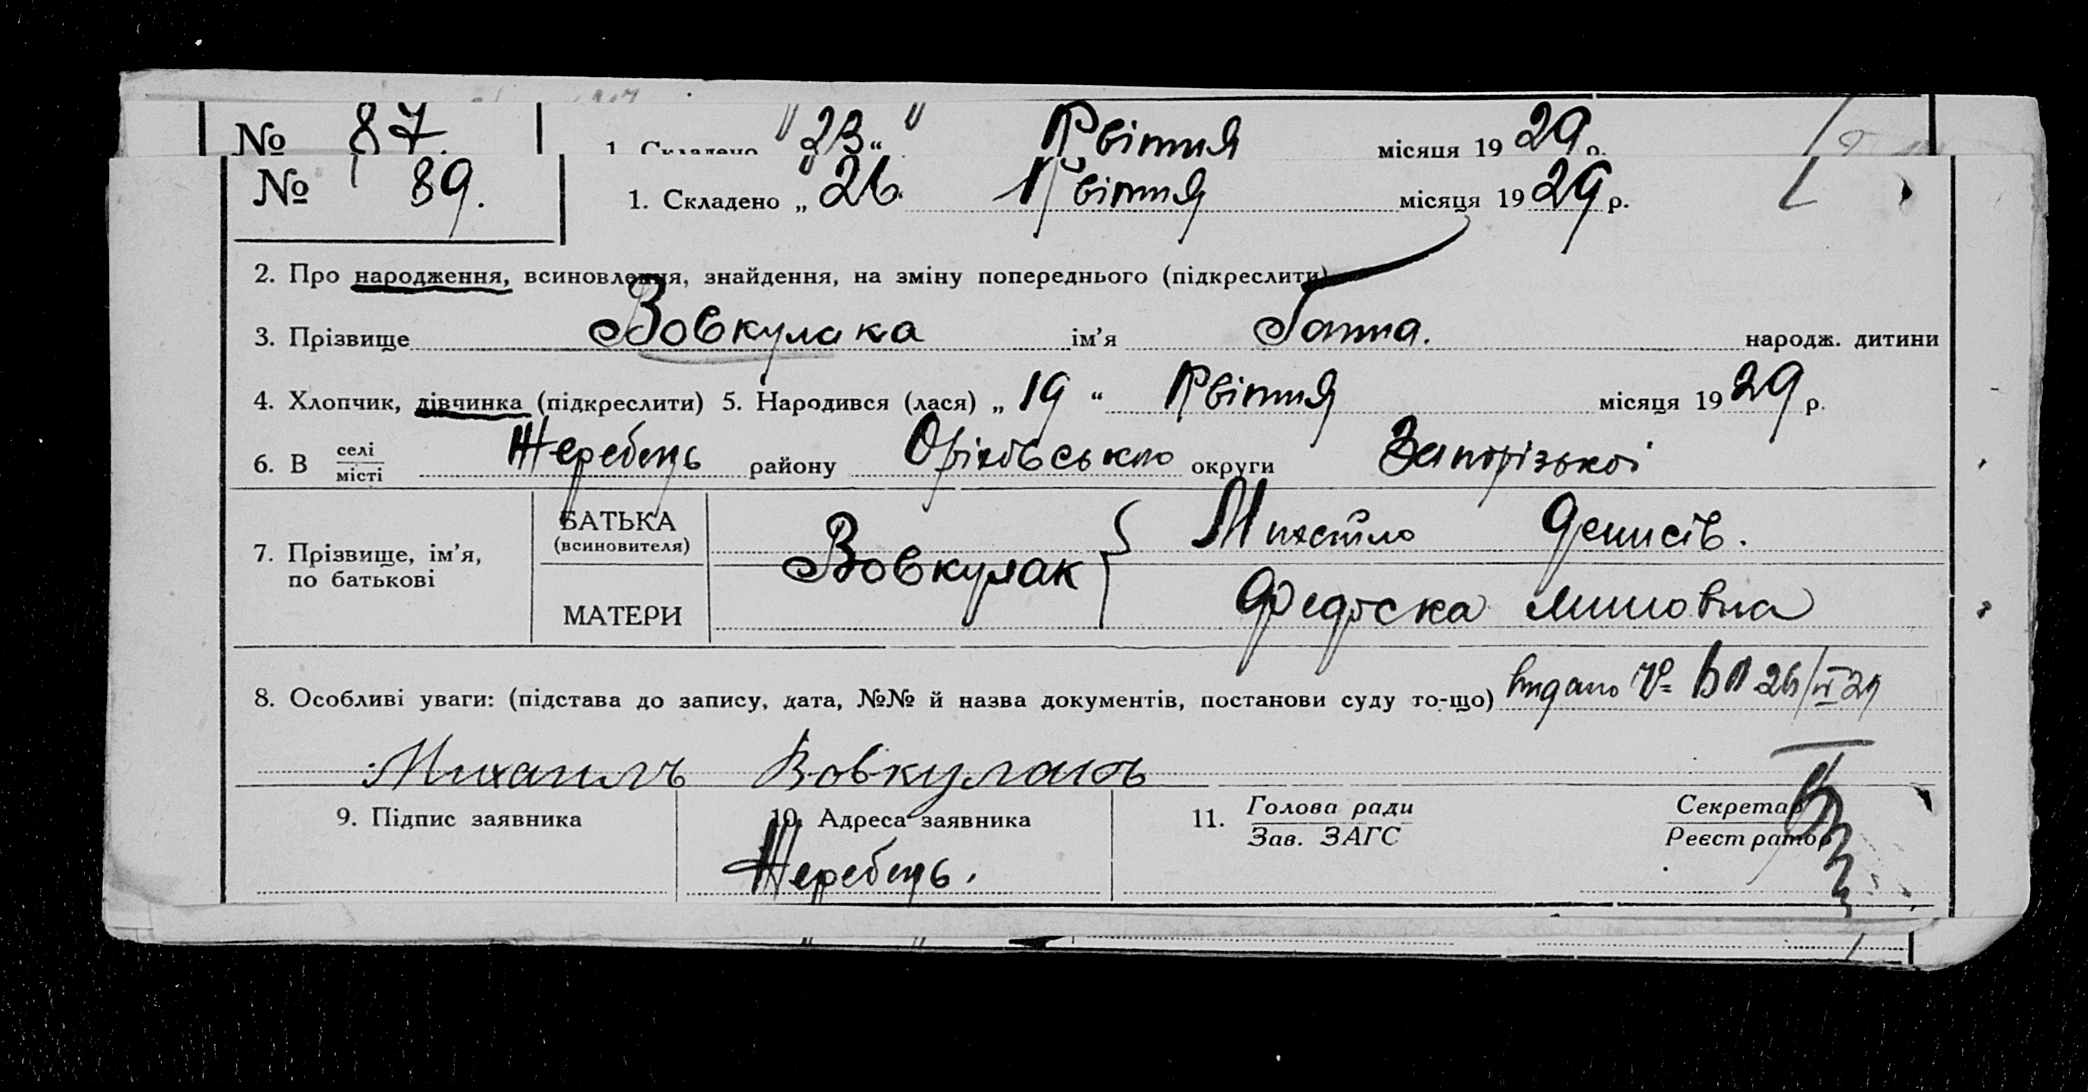 № 87. 1. Складено "23" Квітня місяця 1929 р.
№ 89. 1. Складено „26. Квітня місяця 1929 р.
2. Про народження, всиновлення, знайдення, на зміну попереднього (підкреслити)
3. Прізвище Вовкулака ім’я Ганна. народж. дитини
4. Хлопчик, дівчинка (підкреслити) 5. Народився (лася) „19“ Квітня місяця 1929 р.
6. В селі Жеребець району Оріхівського округи Запорізької
місті
7. Прізвище, ім’я,
по батькові
БАТЬКА
(всиновителя)
МАТЕРИ
Вовкулак
Михайло Денисів.
Федоска
8. Особливі уваги: (підстава до запису, дата, №№ й назва документів, постанови суду то-що) Видано
Михаилъ Вовкулакъ
9. Підпис заявника 10. Адреса заявника 11. Голова ради Секретар
Зав. ЗАГС Реєстратор
Жеребець.